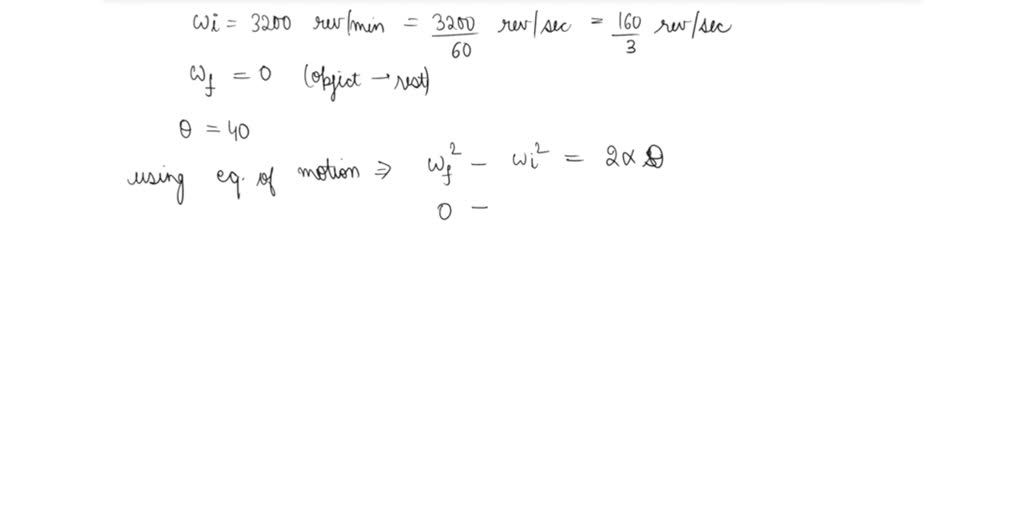 ωi = 3200 rev/min = 3200/60 rev/sec = 160/3 rev/sec
ωf = 0 (object → rest)
θ = 40
using eq. of motion ⇒ ωf² - ωi² = 2αθ
0 -